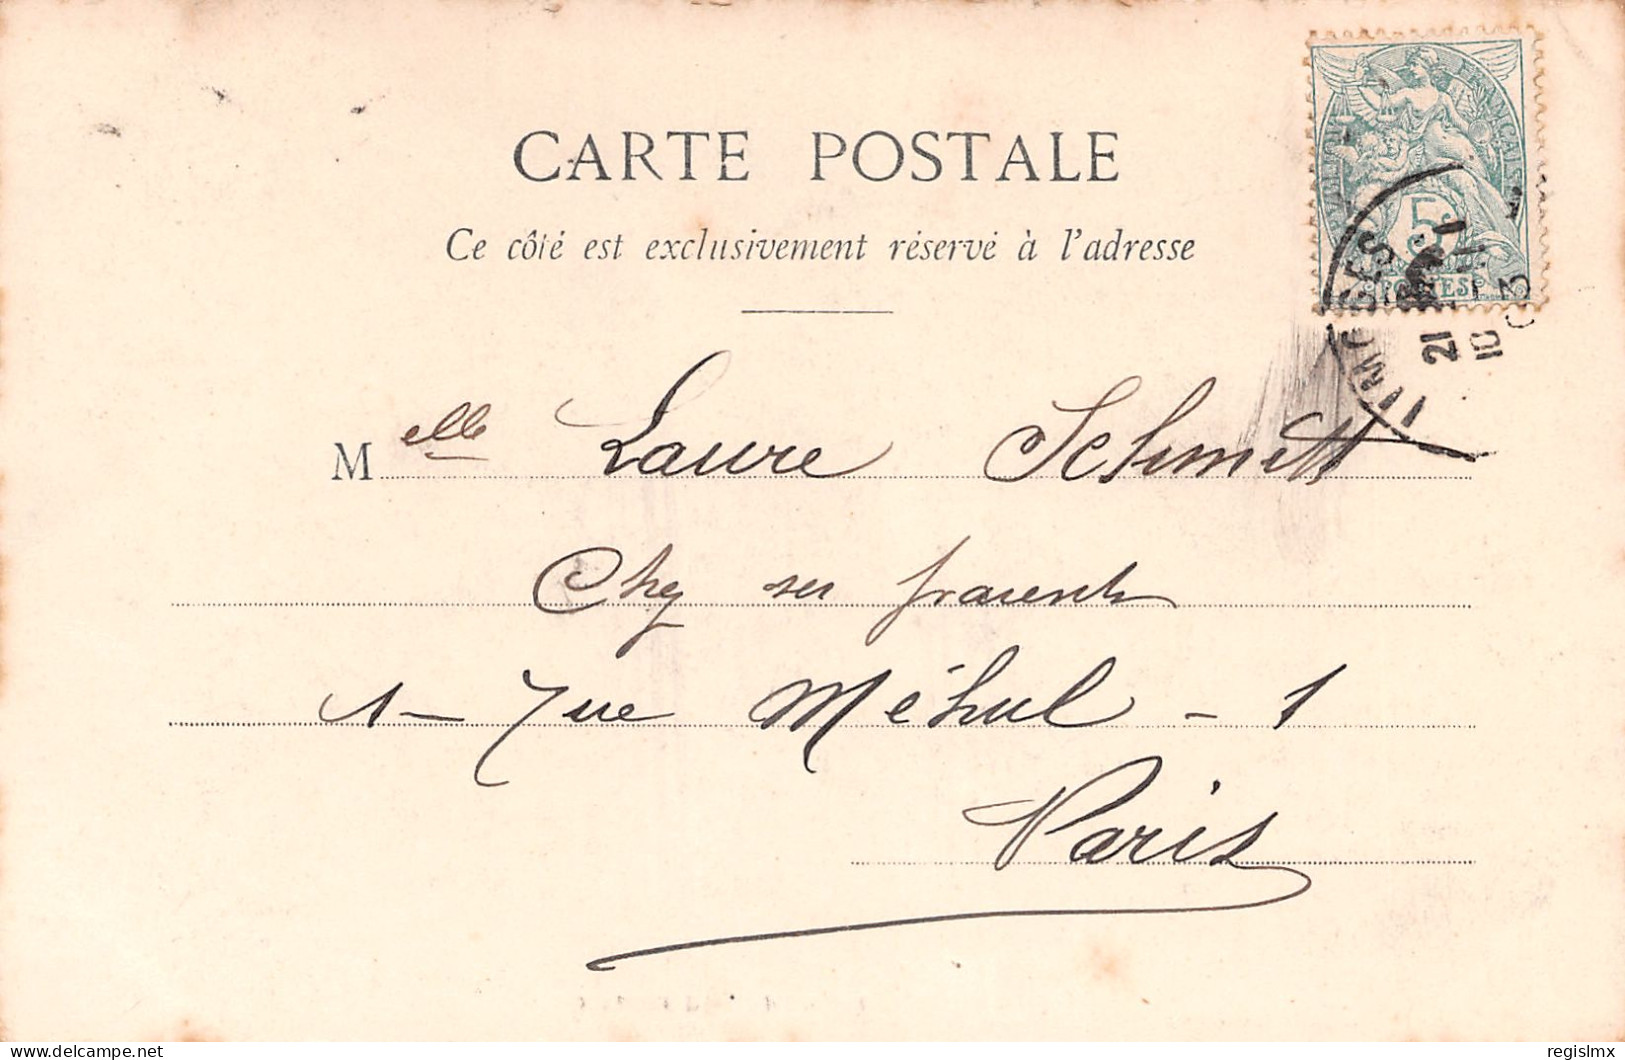 CARTE POSTALE
Ce côté est exclusivement réservé à l'adresse
RÉPUBLIQUE FRANÇAISE
5c
POSTES
LIMOGES
21
10
M elle Laure Schmitt
Chez ses parents
1 - rue Méhul - 1
Paris
delcampe.net
regislmx